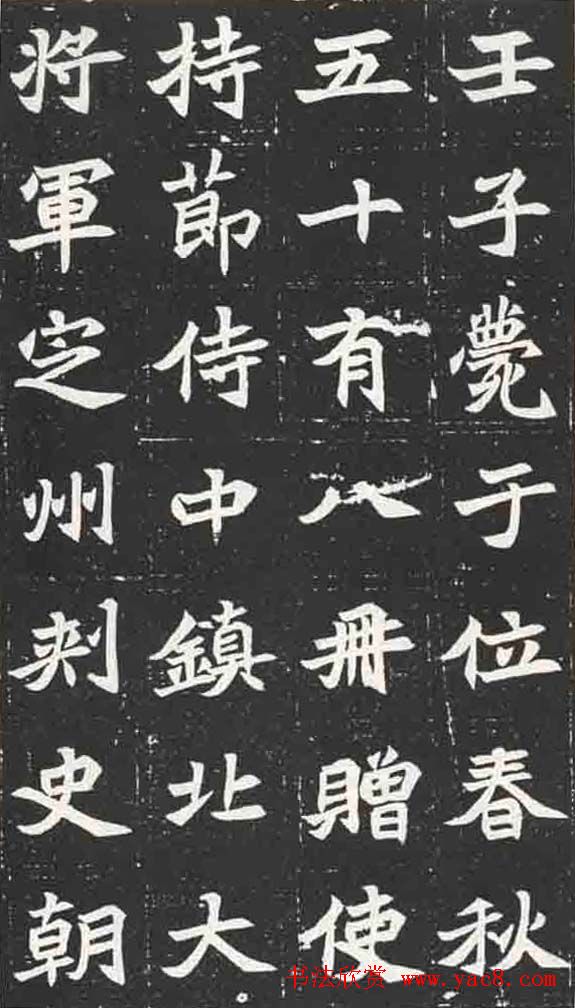 壬子薨于位春秋
五十有八冊贈使
持節侍中鎮北大
將軍定州刺史朝
书法欣赏 www.yac8.com